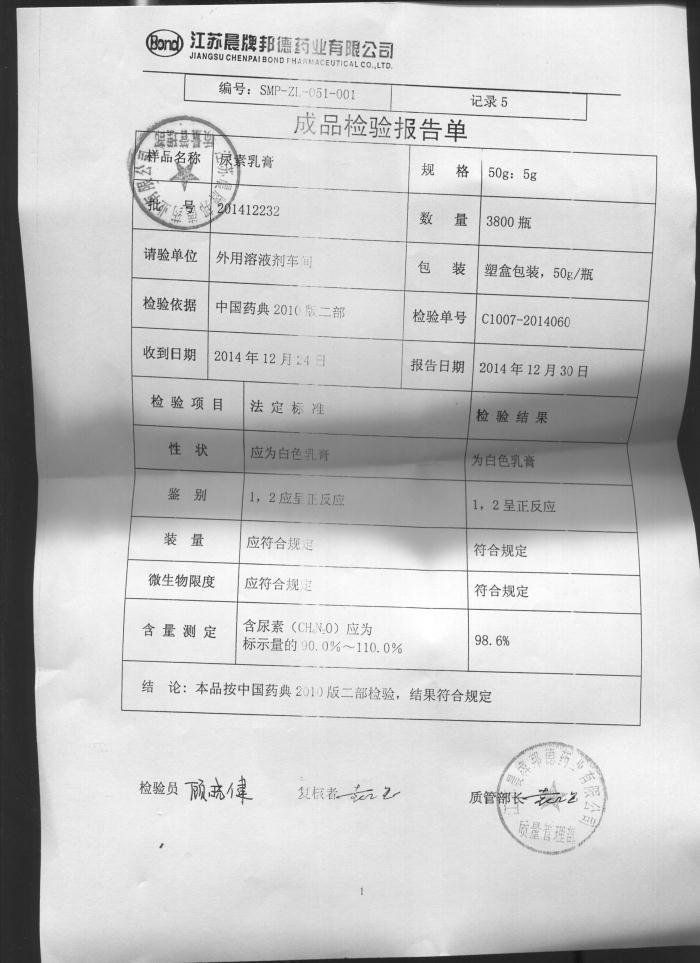 Bond 江苏晨牌邦德药业有限公司
JIANGSU CHENPAI BOND PHARMACEUTICAL CO.,LTD.
编号：SMP-ZL-051-001 记录 5
成品检验报告单
样品名称 尿素乳膏 规 格 50g：5g
批 号 201412232 数 量 3800 瓶
请验单位 外用溶液剂车间 包 装 塑盒包装，50g/瓶
检验依据 中国药典 2010 版二部 检验单号 C1007-2014060
收到日期 2014 年 12 月 24 日 报告日期 2014 年 12 月 30 日
检 验 项 目 法 定 标 准 检 验 结 果
性 状 应为白色乳膏 为白色乳膏
鉴 别 1，2 应呈正反应 1，2 呈正反应
装 量 应符合规定 符合规定
微生物限度 应符合规定 符合规定
含 量 测 定 含尿素（CH₄N₂O）应为
标示量的 90.0%～110.0% 98.6%
结 论：本品按中国药典 2010 版二部检验，结果符合规定
检验员 复核者 质管部长
江苏晨牌邦德药业有限公司
质量管理部
1